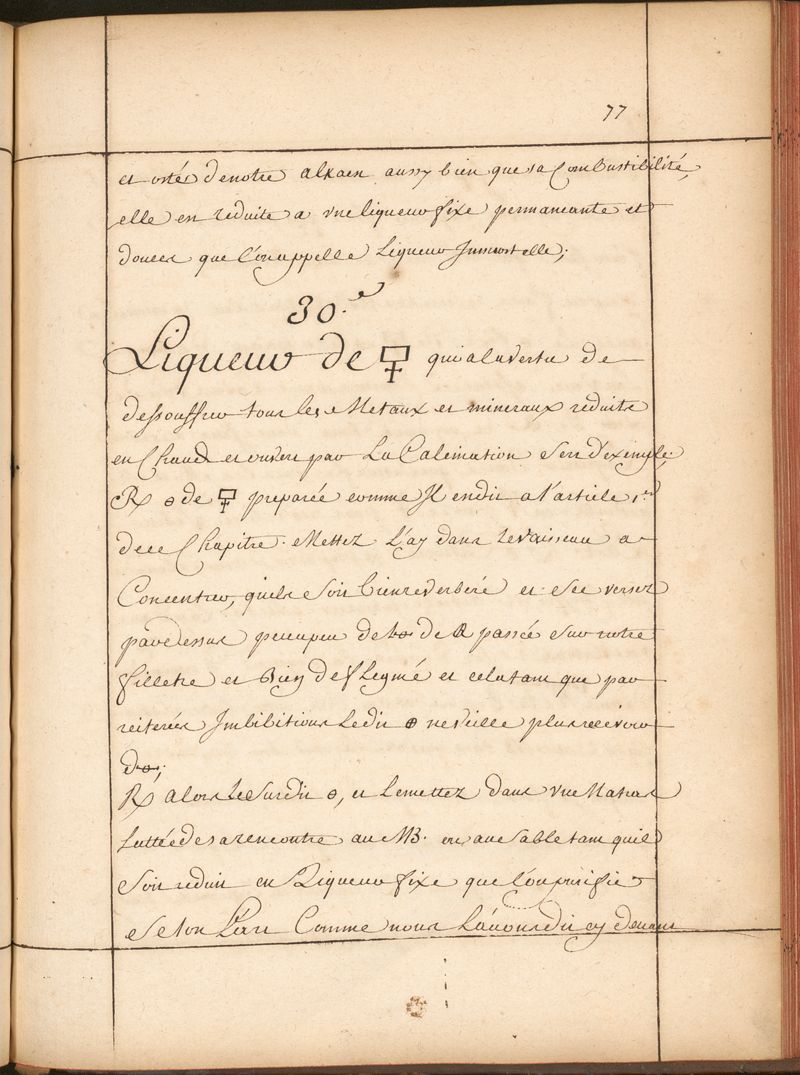 77
et ostée denotre alxaest aussy bien que sa Combustibilité,
elle en reduite a vne liqueur fixe permaneante et
douces que l'on appelle Liqueur Immortelle;
30.e
Liqueur de 🜿 qui a la vertu de
dessouffrer tous les Metaux et mineraux reduits
en Chaux et ouvers par La Calcination sers d'exemple
R⁄ de 🜿 preparée comme Il en dit a l'article 1.er
de ce Chapitre. Mettez L'ay dans le vaisseau a
Concentrer, quils soit bien reverberé et sec versez
par dessus peu a peu de de passée sur notre
filletre et bien deflegmé et cela tant que par
reiterées Imbibitions Ledit ne veille plus recevoir
R⁄ alors Le Surdit , et Lemettez dans vne Matras
Luttée de sa rencontre au MB. ou au sable tant quil
Soit reduit en Liqueur fixe que l'on purifie
Selon L'art Comme nous L'auons dit cy deuant